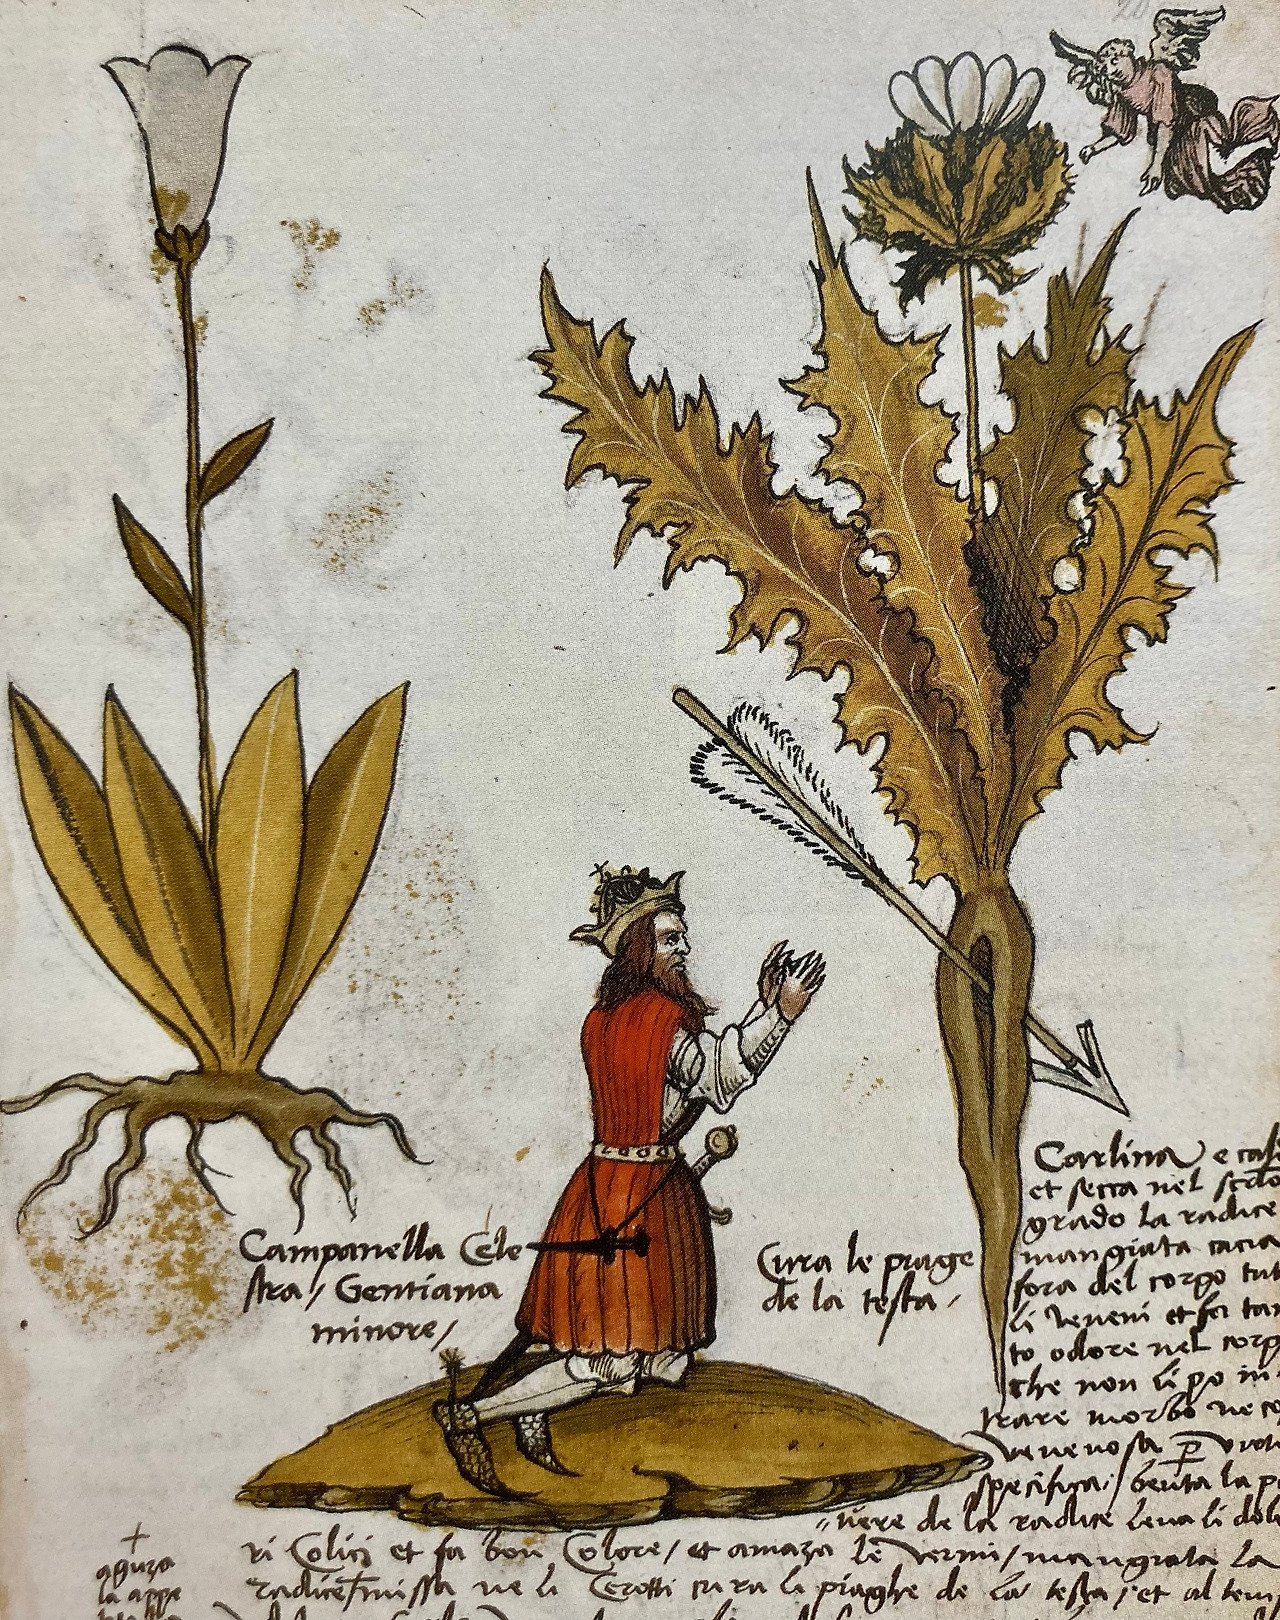 Campanella Cele
stra / Gentiana
minore /
Cura le piage
de la testa /
Carlina e cal
et secca nel
grado la radice
mangiata cacia
fora del corpo tut
li veneni et fa tan
to odore nel corp
che non li po in
trare morbo ne co
venenosa p
specifica / beuta la p
vere de la radice leva li dol
ri Colici et fa bon Colore / et amaza le vermi / mangiata la
radice missa ne li Cerotti cura li piaghe de la testa / et al tem
+
aguza
la appe